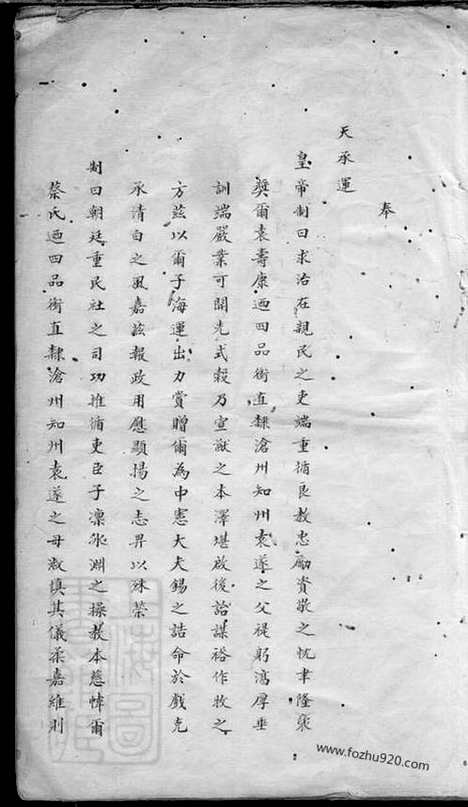 奉
天承運
皇帝制曰求治在親民之吏端重循良教忠勵資敬之忱聿隆褒
獎爾袁壽康迺四品銜直隸滄州知州袁遂之父禔躬淳厚垂
訓端嚴業可開先式榖乃宣猷之本澤堪啟後詒謀裕作牧之
方茲以爾子海運出力賞贈爾為中憲大夫錫之誥命於戲克
承清白之風嘉茲報政用慰顯揚之志畀以殊榮
制曰朝廷重民社之司功推循吏臣子凜冰淵之操教本慈幃爾
蔡氏迺四品銜直隸滄州知州袁遂之母淑慎其儀柔嘉維則
上海圖書館
www.fozhu920.com